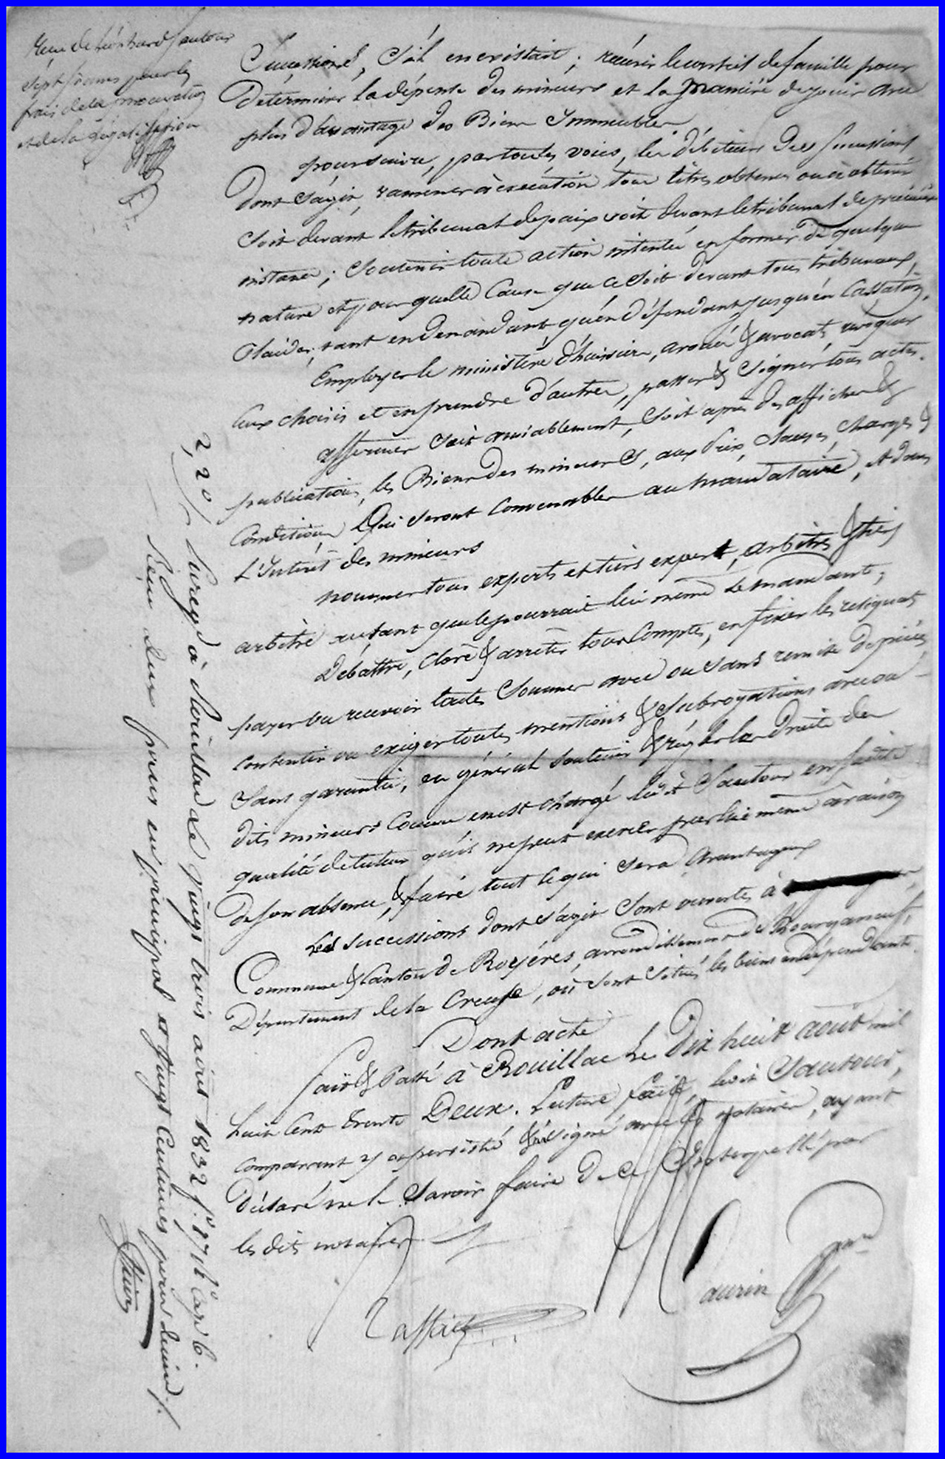 Reçu de Léonhard Sautour
sept francs pour les
frais de la procuration
et de la légalisation
Successions, s'il en existait ; réunir le conseil de famille pour
déterminer la dépense des mineurs et la manière de jouir avec
plus d'avantage des Biens Immeubles.
poursuivre, par toutes voies, les débiteurs des successions
dont s'agit, ramener à exécution tous titres obtenus ou à obtenir
soit devant le tribunal de paix soit devant le tribunal de première
instance ; soutenir toute action intentée en former de quelque
nature et pour quelle cause que ce soit devant tous tribunaux,
Plaider, tant en demandant qu'en défendant jusqu'en Cassation,
Employer le ministère d'huissier, avoué & avocat, révoquer
ceux choisis et en prendre d'autres, passer & signer tous actes.
affermer soit amiablement, soit après des affiches &
publications, les Biens des mineurs, aux Prix, clauses, charges &
Conditions qui seront convenables au mandataire, et dans
L'Intérêt des mineurs
nommer tous experts et tiers expert, arbitres & tiers
arbitre autant que le pourrait lui même le mandant ;
Débattre, clore & arrêter tous comptes, en fixer les reliquats
payer ou recevoir toutes sommes avec ou sans remise de pièces,
consentir ou exiger toutes mentions & subrogations avec ou
sans garantie, en général soutenir & régler les droits des
dits mineurs comme en est chargé led. Sautour en sadite
qualité de tuteur qu'il ne peut exercer par lui même à raison
de son absence, & faire tout ce qui sera avantageux
Les successions dont s'agit sont ouvertes à
Commune & Canton de Royères, arrondissement de Bourganeuf,
Département de la Creuse, où sont situés les biens en dépendants.
Dont acte
Fait & Passé à Rouillac le Dix huit août mil
huit cent trente Deux. Lecture faite, ledit Sautour,
comparant y a persisté & n'a signé avec les notaires, ayant
Déclaré ne le savoir faire de ce interpellé par
les dits notaires
Laurin
Taffait
Enreg. à Rouillac le vingt trois août 1832 f.
Reçu deux francs en principal et vingt centimes pour décime